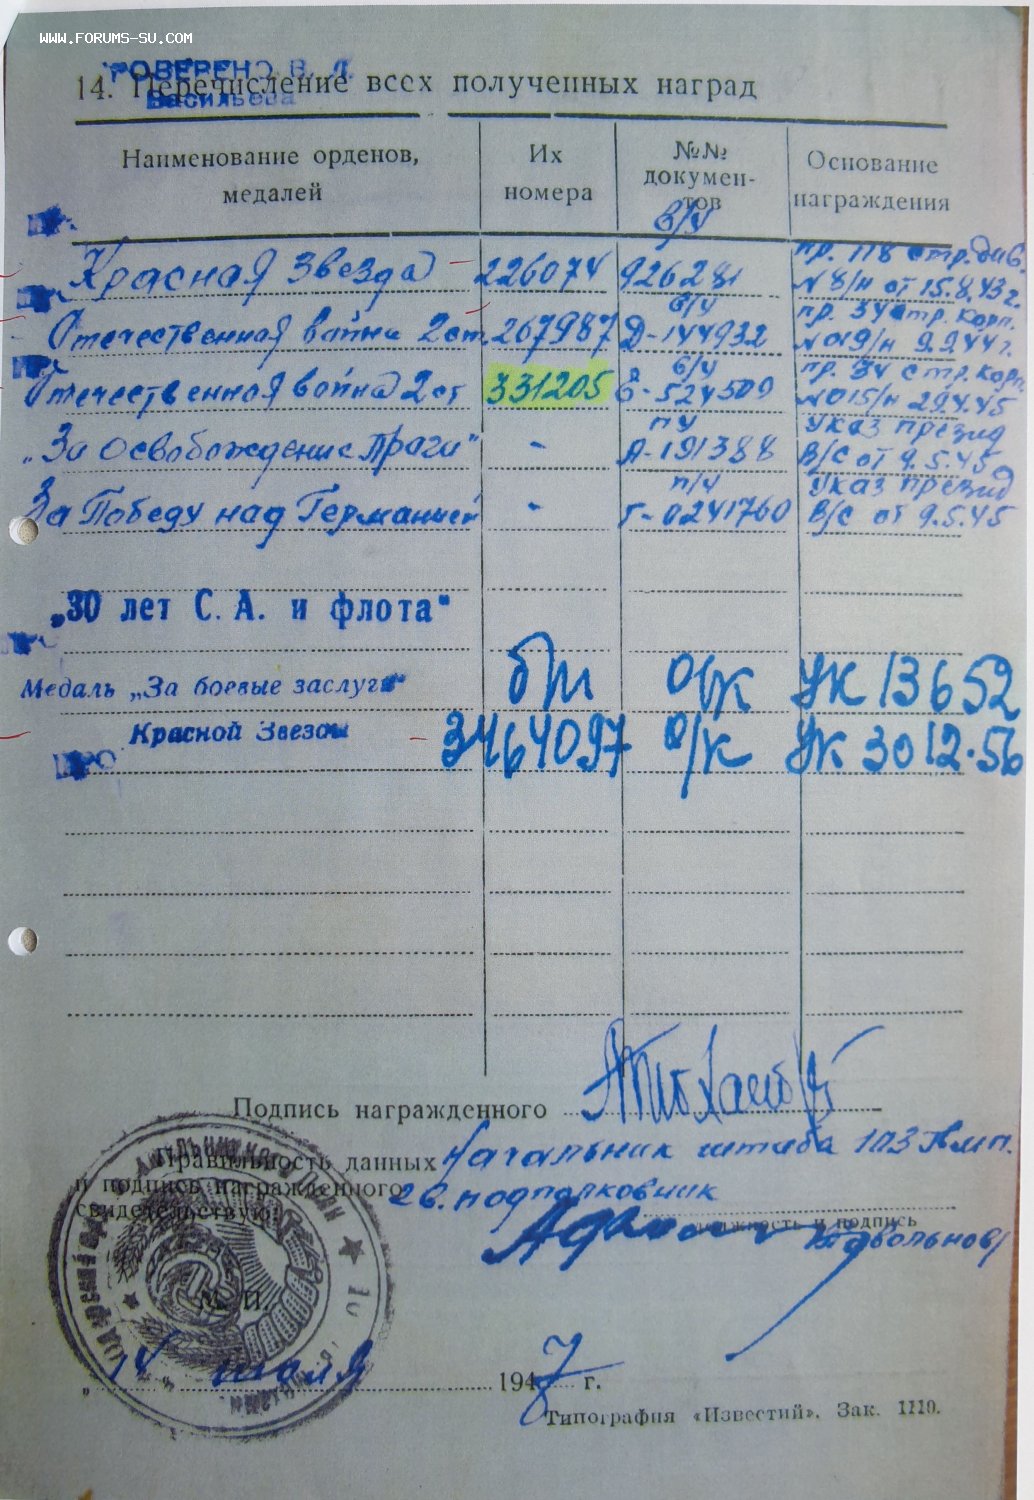 WWW.FORUMS-SU.COM
РОВЕРЕНО В. Л.
Васильева
14. Перечисление всех полученных наград
Наименование орденов, медалей
Их номера
№№ документов
Основание награждения
в/ч
Красная Звезда 226074 926281 пр. 118 стр. див. № 8/н от 15.8.43 г.
в/ч
Отечественная война 2 ст. 267987 Д-144932 пр. 34 стр. корп. № 019/н 9.9.44 г.
в/ч
Отечественная война 2 ст 331205 Е-524509 пр. 34 стр. корп № 015/н 29.4.45
„За освобождение Праги" - А-191388 Указ презид В/С от 9.5.45
п/ч
За Победу над Германией - Г-0241760 Указ презид В/С от 9.5.45
„30 лет С. А. и флота"
Медаль „За боевые заслуги" б/н о/к УК 13652
Красной Звезды 3464097 о/к УК 3012.56
ПРО
Подпись награжденного
Правильность данных Начальник штаба 103
и подпись награжденного гв. подполковник
свидетельствую:
должность и подпись
М. П.
„14" июля 1947 г.
Типография «Известий». Зак. 1110.